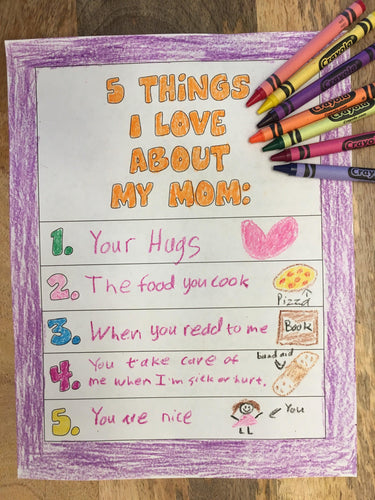 5 THINGS
I LOVE
ABOUT
MY MOM:
1. Your Hugs
2. The food you cook
Pizza
3. When you read to me
Book
band aid
4. You take care of
me when I'm sick or hurt.
5. You are nice
You
Crayola
Crayola
Crayola
Crayola
Crayola
Crayola